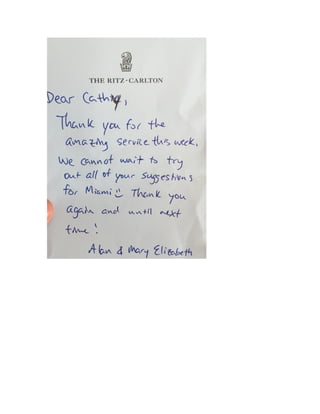 THE RITZ-CARLTON
Dear Cathy,
Thank you for the
amazing service this week.
We cannot wait to try
out all of your suggestions
for Miami Thank you
again and until next
time!
Alan & Mary Elizabeth